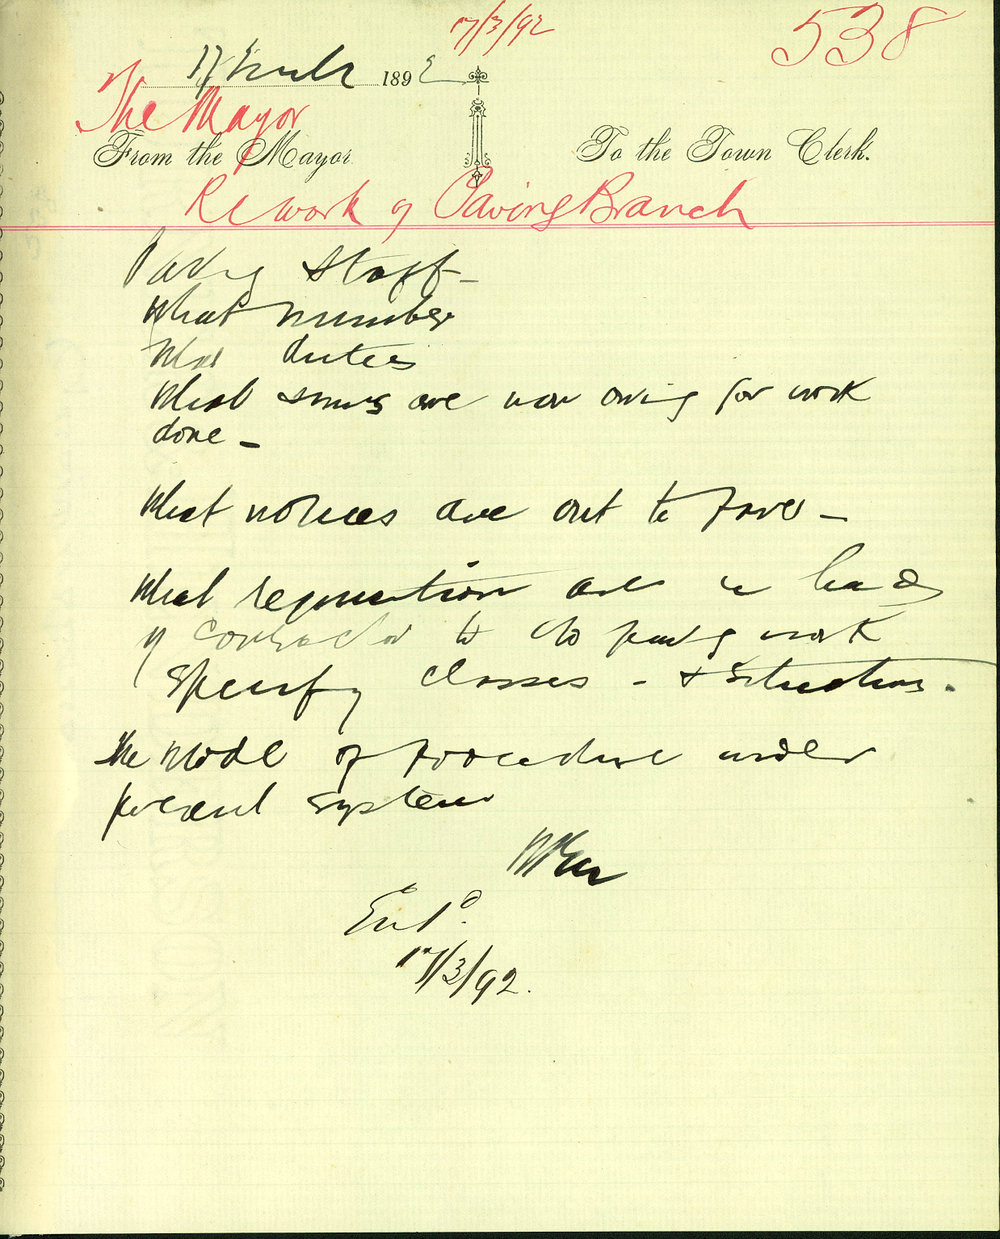 17/3/92
538
17 March 1892
The Mayor
From the Mayor
To the Town Clerk.
Re work of Paving Branch
Paving Staff -
What number
What duties
What sums are now owing for work
done -
What notices are out to pave -
What requisitions are in hands
of contractor to do paving work
Specify classes - & situations.
The mode of procedure under
present system
Ent.d
17/3/92.